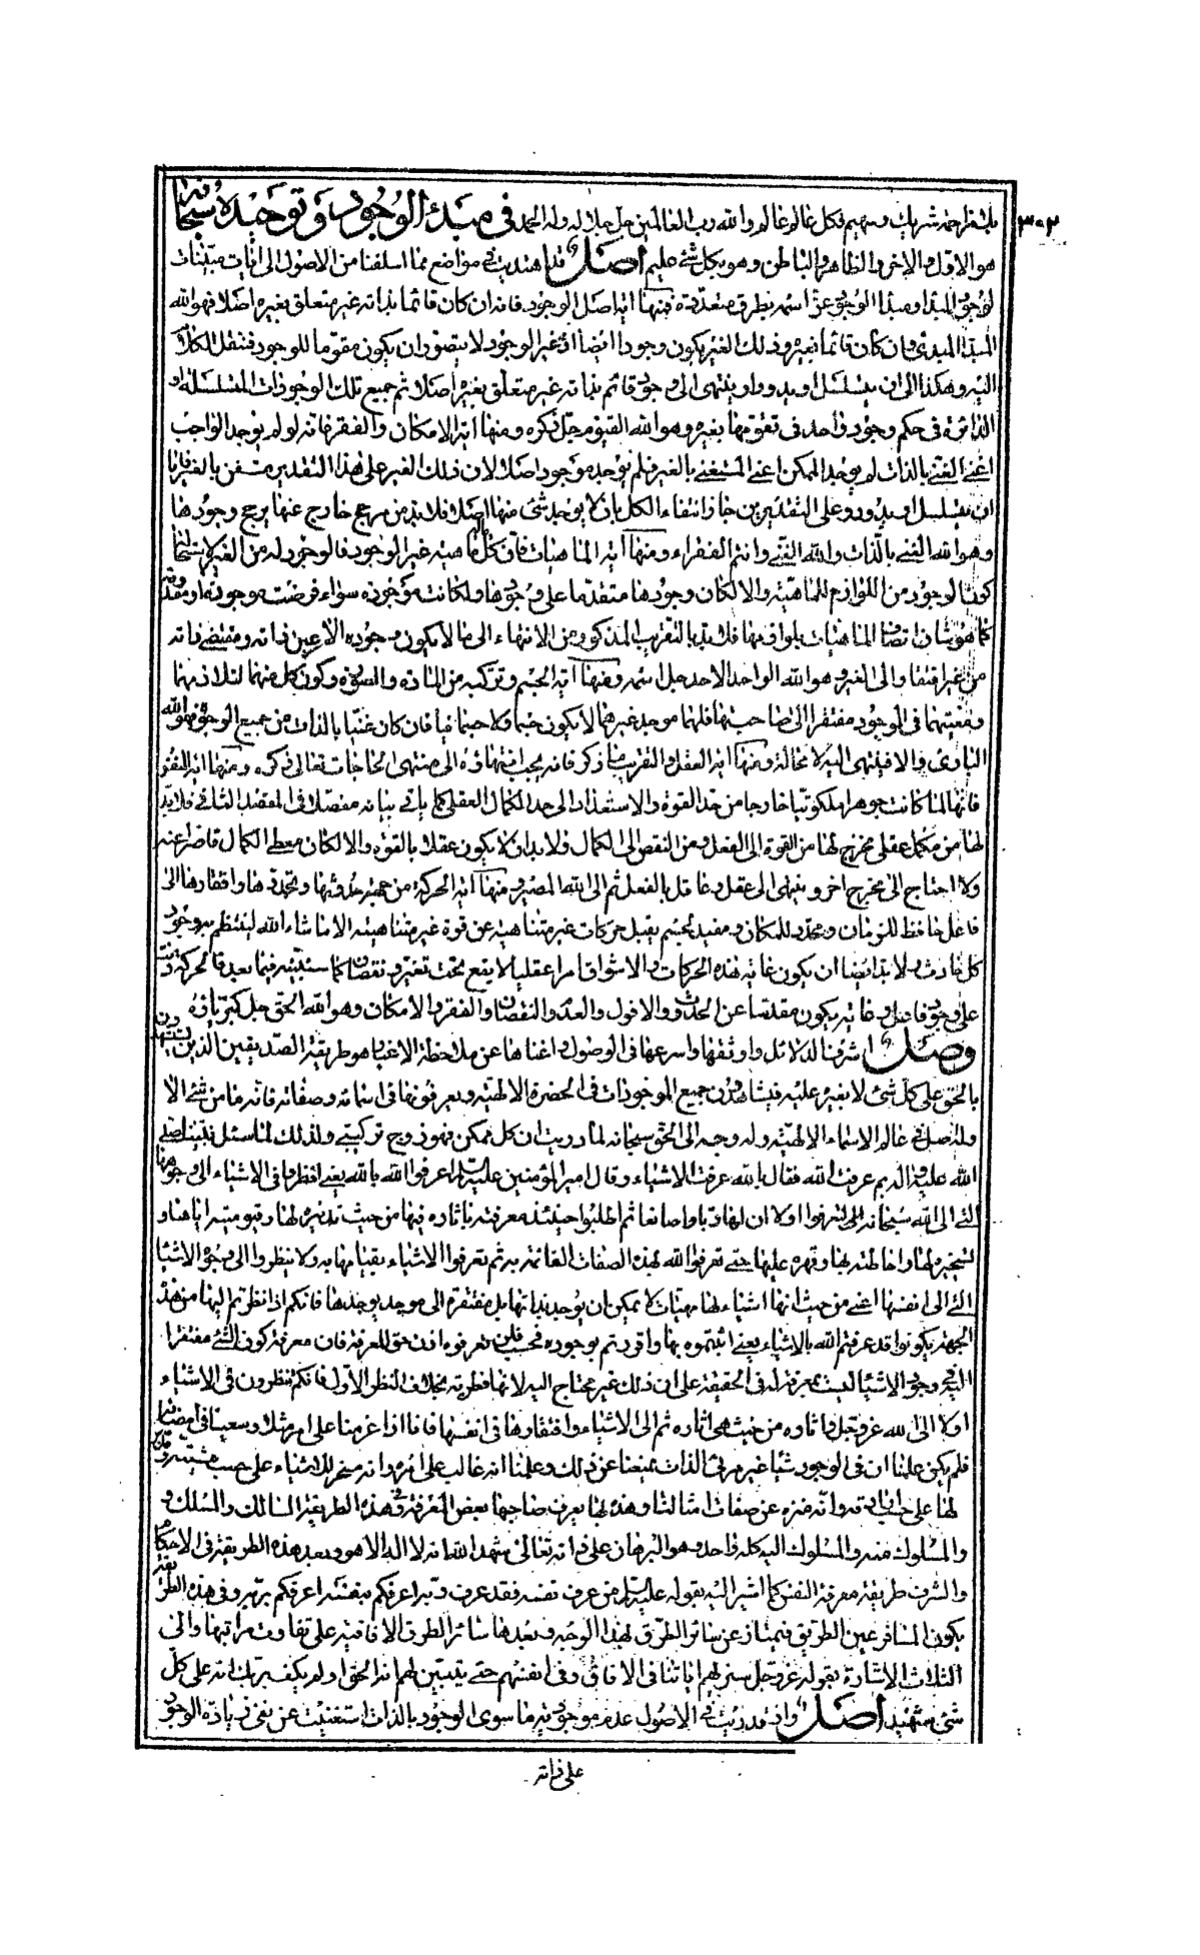 بك بمزاحمة شريك وسهيم فكل عالم عالم والله رب العالمين جل جلاله وله الحمد في مبدء الوجود وتوحيده سبحانه
هو الاول والاخر والظاهر والباطن وهو بكل شئ عليم اصل قد اهتديت في مواضع مما اسلفنا من الاصول الى اثبات مبينات
لوجود المبدا ومبدا الوجود عز اسمه بطرق متعددة فمنها انية اصل الوجود فانه ان كان قائما بذاته غير متعلق بغيره اصلا فهو الله
المبدئ وان كان قائما بغيره وذلك الغير يكون وجودا ايضا اذ غير الوجود لا يتصور ان يكون مقوما للوجود فننقل الكلام
اليه وهكذا الى ان يتسلسل او يدور او ينتهى الى وجود قائم بذاته غير متعلق بغيره اصلا ثم جميع تلك الوجودات المتسلسلة او
الدائرة في حكم وجود واحد في تقومها بغيره وهو الله القيوم جل ذكره ومنها انية الامكان والفقر فانه لو لم يوجد الواجب
اعني الغني بالذات لم يوجد الممكن اعني المستغني بالغير فلم يوجد موجود اصلا لان ذلك الغير على هذا التقدير مستغن بالغير فاما
ان يتسلسل او يدور وعلى التقديرين جاز انتفاء الكل بان لا يوجد شئ منها اصلا فلا بد من مرجح خارج عنها يرجح وجودها
وهو الله الغني بالذات والله الغني وانتم الفقراء ومنها انية الماهيات فان كل ماهية غير الوجود فالوجود له من الغير لاستحالة
كون الوجود من اللوازم للماهية والا لكان وجودها متقدما على وجودها ولكانت موجودة سواء فرضت موجودة او مفقودة
كما هو شان اقتضاء الماهيات بلوازمها فلا بد بالتقريب المذكور من الانتهاء الى ما لا يكون وجوده الا عين ذاته ومقتضى ذاته
من غير افتقار الى الغير وهو الله الواحد الاحد جل اسمه ومنها انية الجسم وتركبه من المادة والصورة وكون كل منهما لتلازمهما
ومعيتهما في الوجود مفتقرا الى صاحبتها فلهما موجد غيرهما لا يكون جسما ولا جسمانيا فان كان غنيا بالذات من جميع الوجوه فهو الله
البارئ والا فينتهى اليه لا محالة ومنها انية العقل والتقريب ما ذكر فانه يجب انتهاؤه الى منتهى الحاجات تعالى ذكره ومنها انية النفوس
فانها لما كانت جوهرا ملكوتيا خارجا من حد القوة والاستعداد الى حد الكمال العقلي كما ياتي بيانه مفصلا في المقصد الثاني فلا بد
لها من مكمل عقلي مخرج لها من القوة الى الفعل ومن النقص الى الكمال ولا بد ان لا يكون عقلا بالقوة والا لكان معطي الكمال قاصرا عنه
ولا احتاج الى مخرج اخر وينتهى الى عقل وعاقل بالفعل ثم الى الله المصير ومنها انية الحركة من جهة حدوثها وتجددها وافتقارها الى
فاعل حافظ للزمان ومحدد للمكان ومفيد لجسم يقبل حركات غير متناهية عن قوة غير متناهية الا ما شاء الله لينتظم به وجود
كل حادث ولا بد ايضا ان يكون غاية هذه الحركات والاشواق امرا عقليا لا يقع تحت تغير ونقصان كما سنبينه فيما بعد فالحركة دلت
على وجود فاعل وغاية يكون مقدسا عن الحدوث والافول والعدم والنقصان والفقر والامكان وهو الله الحق جل كبرياؤه
وصل اشرف الدلائل واوثقها واسرعها في الوصول واغناها عن ملاحظة الاغيار هو طريقة الصديقين الذين يستشهدون
بالحق على كل شئ لا بغيره عليه فيشاهدون جميع الموجودات في الحضرة الالهية ويعرفونها في اسمائه وصفاته فانه ما من شئ الا
وله اصل في عالم الاسماء الالهية وله وجه الى الحق سبحانه لما دريت ان كل ممكن فهو زوج تركيبي ولذلك لما سئل نبينا صلى
الله عليه واله بم عرفت الله فقال بالله عرفت الاشياء وقال امير المؤمنين عليه السلام اعرفوا الله بالله يعني انظروا في الاشياء الى وجوهها
التي الى الله سبحانه اي لتعرفوا اولا ان لها ربا وصانعا ثم اطلبوا حينئذ معرفته باثاره فيها من حيث تدبيره لها وقيوميته اياها و
تسخيره لها واحاطته بها وقهره عليها حتى تعرفوا الله بهذه الصفات القائمة به ثم تعرفوا الاشياء بقيامها به ولا ينظروا الى وجوه الاشياء
التي الى انفسها اعني من حيث انها اشياء لها مهيات لا يمكن ان يوجد بذاتها بل مفتقرة الى موجد يوجدها فانكم اذا نظرتم اليها من هذه
الجهة تكونوا قد عرفتم الله بالاشياء يعني اثبتموه بها واقررتم بوجوده فحسب فلن تعرفوه اذن حق المعرفة فان معرفة كون الشئ مفتقرا
اليه في وجود الاشياء ليست بمعرفة له في الحقيقة على ان ذلك غير محتاج اليه لانها فطرية بخلاف النظر الاول فانكم تنظرون في الاشياء
اولا الى الله عز وجل واثاره من حيث هي اثاره ثم الى الاشياء وافتقارها في انفسها فانا اذا عزمنا على امر مثلا وسعينا في امضائه
فلم يكن علمنا ان في الوجود شيئا غير مرئي الذات يمنعنا عن ذلك وعلمنا انه غالب على امره وانه مسخر للاشياء على حسب مشيته ومدبر
لها على حسب ارادته وانه منزه عن صفات امثالنا وهذه لها يعرف صاحبها بعض المعرفة وفي هذه الطريقة السالك والمسلك و
والمسلوك منه والمسلوك اليه كله واحد وهو البرهان على ذاته تعالى شهد الله انه لا اله الا هو وبعد هذه الطريقة في الاحكام
والشرف طريقة معرفة النفس كما اشير اليه بقوله عليه السلام من عرف نفسه فقد عرف ربه اعرفكم بنفسه اعرفكم بربه وفي هذه الطريقة
يكون المسافر عين الطريق فيمتاز عن سائر الطرق لهذا الوجه وبعدها سائر الطرق الافاقية على تفاوت مراتبها والى
الثلاث الاشارة بقوله عز وجل سنريهم اياتنا في الافاق وفي انفسهم حتى يتبين لهم انه الحق اولم يكف بربك انه على كل
شئ شهيد اصل واذ قد دريت في الاصول عدم موجودية ما سوى الوجود بالذات استغنيت عن نفي زيادة الوجود
على ذاته
٣٠٢